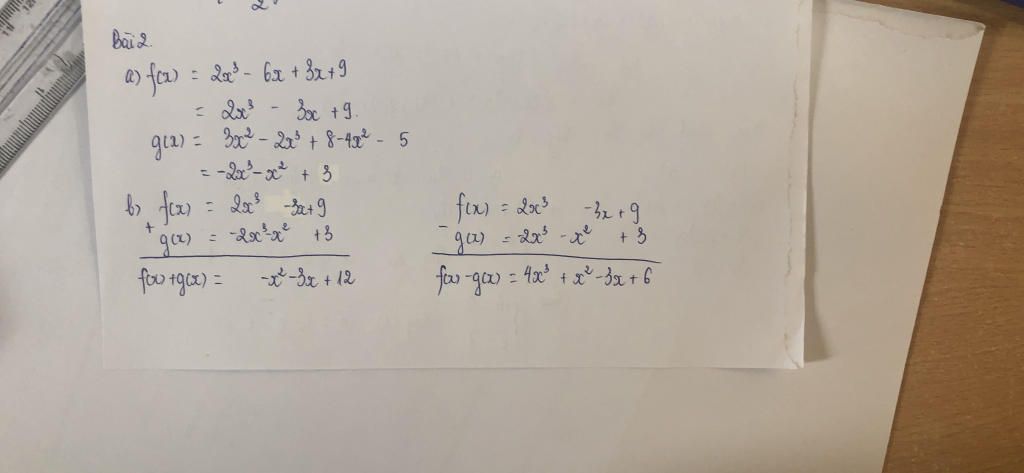 Bài 2.
a) f(x) = 2x³ - 6x + 3x + 9
= 2x³ - 3x + 9.
g(x) = 3x² - 2x³ + 8 - 4x² - 5
= -2x³ - x² + 3
b) f(x) = 2x³ -3x + 9
+ g(x) = -2x³ - x² + 3
f(x) + g(x) = -x² - 3x + 12
f(x) = 2x³ -3x + 9
- g(x) = -2x³ - x² + 3
f(x) - g(x) = 4x³ + x² - 3x + 6